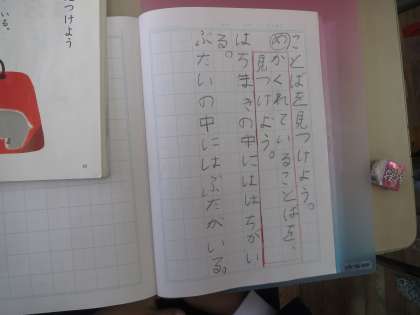 ことばを見つけよう。
めかくれていることばを、
見つけよう。
はちまきの中にははちがい
る。
ぶたいの中にはぶたがいる。
つけよう
いる。